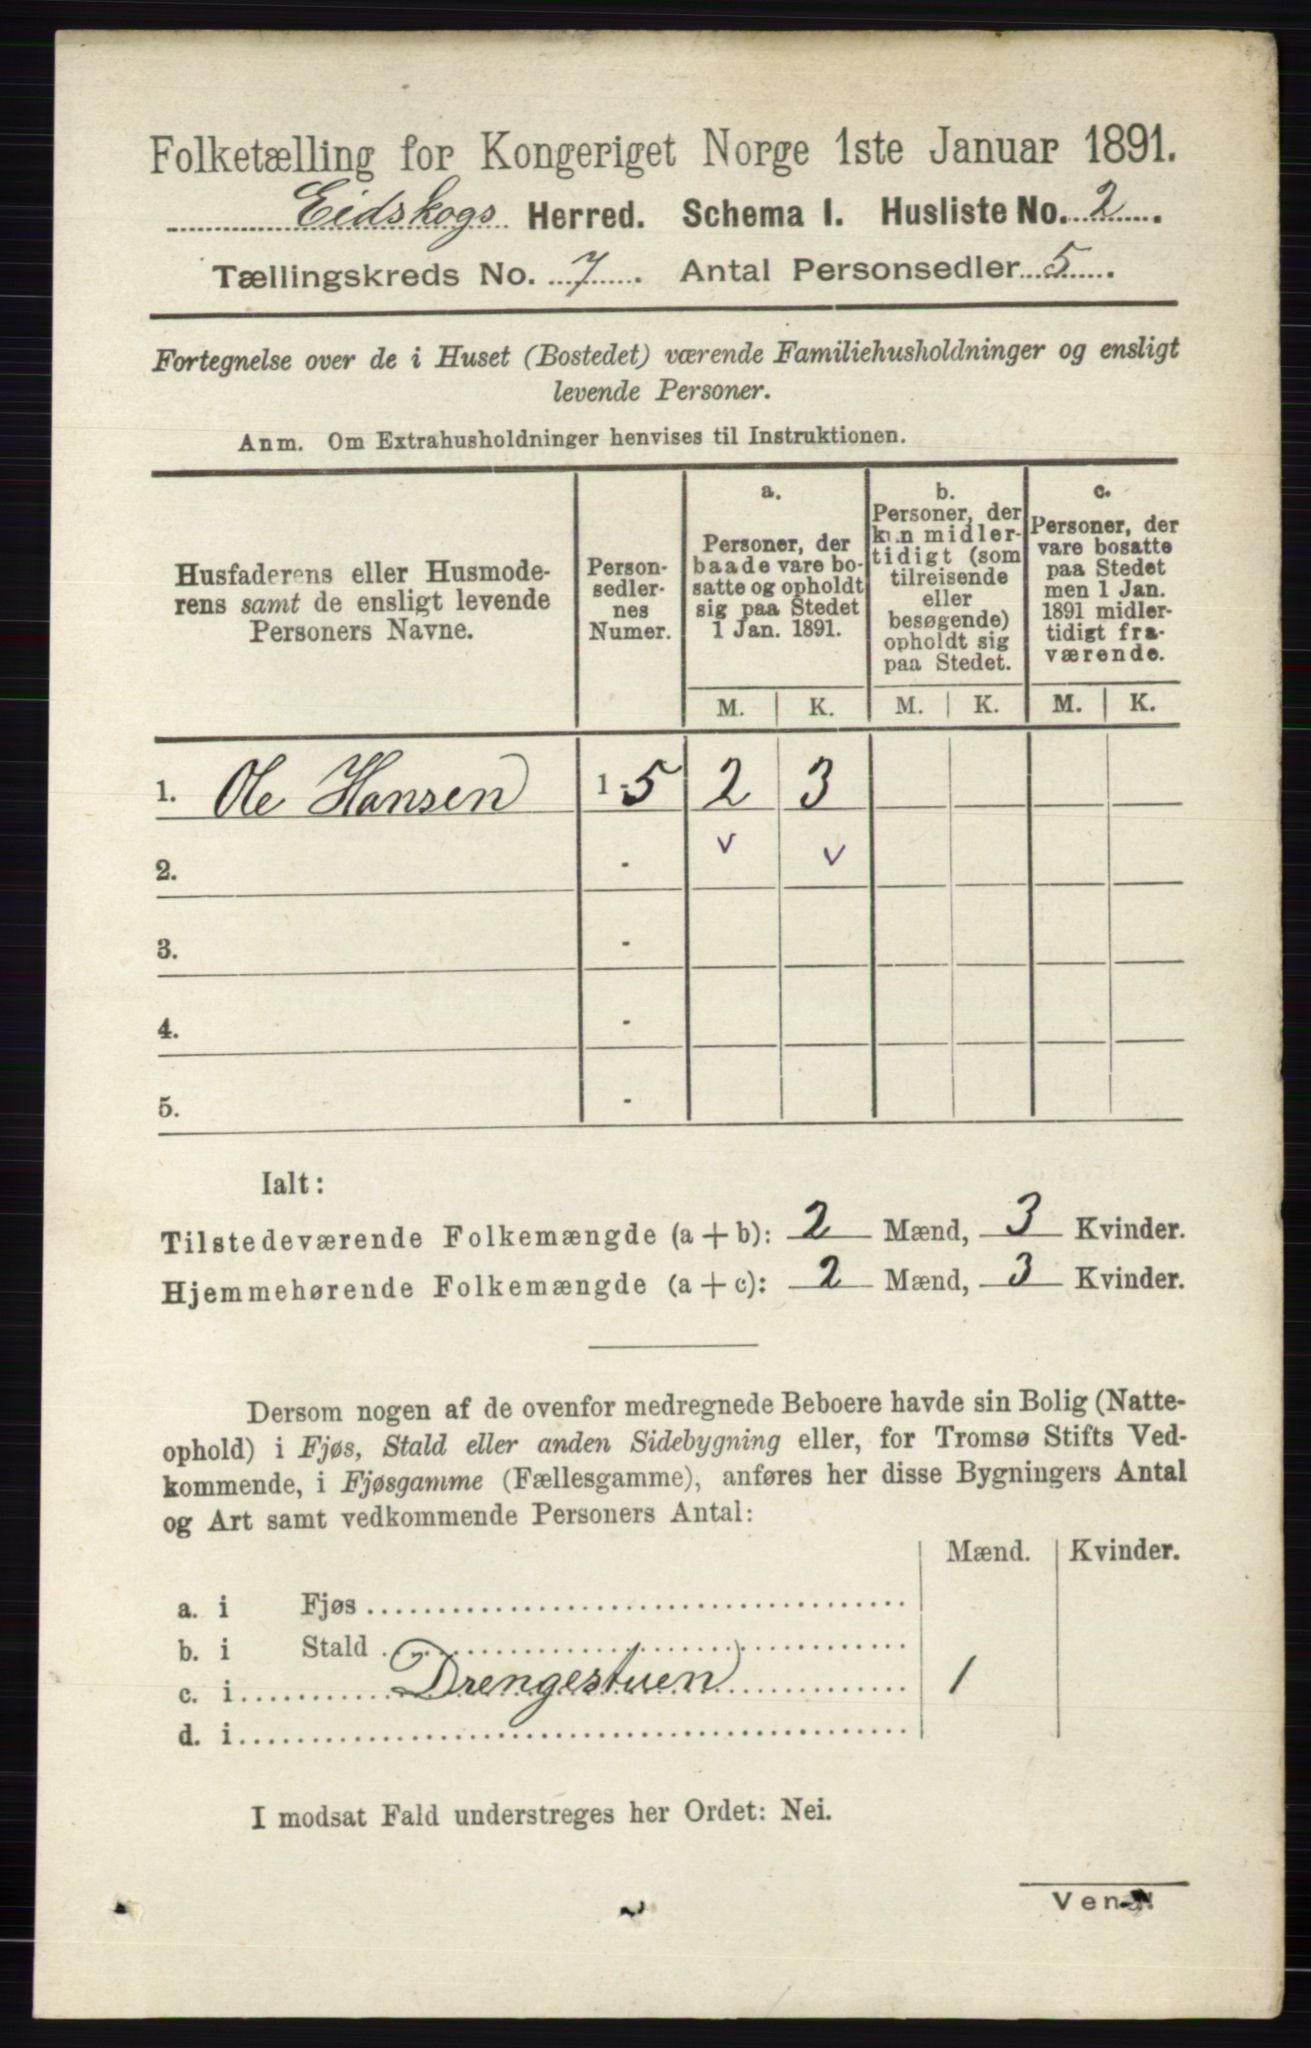 Folketælling for Kongeriget Norge 1ste Januar 1891.
Eidskogs Herred. Schema I. Husliste No. 2.
Tællingskreds No. 7. Antal Personsedler 5.
Fortegnelse over de i Huset (Bostedet) værende Familiehusholdninger og ensligt
levende Personer.
Anm. Om Extrahusholdninger henvises til Instruktionen.
Husfaderens eller Husmode-
rens samt de ensligt levende
Personers Navne.
Person-
sedler-
nes
Numer.
a.
Personer, der
baade vare bo-
satte og opholdt
sig paa Stedet
1 Jan. 1891.
b.
Personer, der
kun midler-
tidigt (som
tilreisende
eller
besøgende)
opholdt sig
paa Stedet.
c.
Personer, der
vare bosatte
paa Stedet
men 1 Jan.
1891 midler-
tidigt fra-
værende.
M. K. M. K. M. K.
1. Ole Hansen 1-5 2 3
2. - v v
3. -
4. -
5. -
Ialt:
Tilstedeværende Folkemængde (a + b): 2 Mænd, 3 Kvinder.
Hjemmehørende Folkemængde (a + c): 2 Mænd, 3 Kvinder.
Dersom nogen af de ovenfor medregnede Beboere havde sin Bolig (Natte-
ophold) i Fjøs, Stald eller anden Sidebygning eller, for Tromsø Stifts Ved-
kommende, i Fjøsgamme (Fællesgamme), anføres her disse Bygningers Antal
og Art samt vedkommende Personers Antal:
Mænd. Kvinder.
a. i Fjøs
b. i Stald
c. i Drengestuen 1
d. i
I modsat Fald understreges her Ordet: Nei.
Vend!